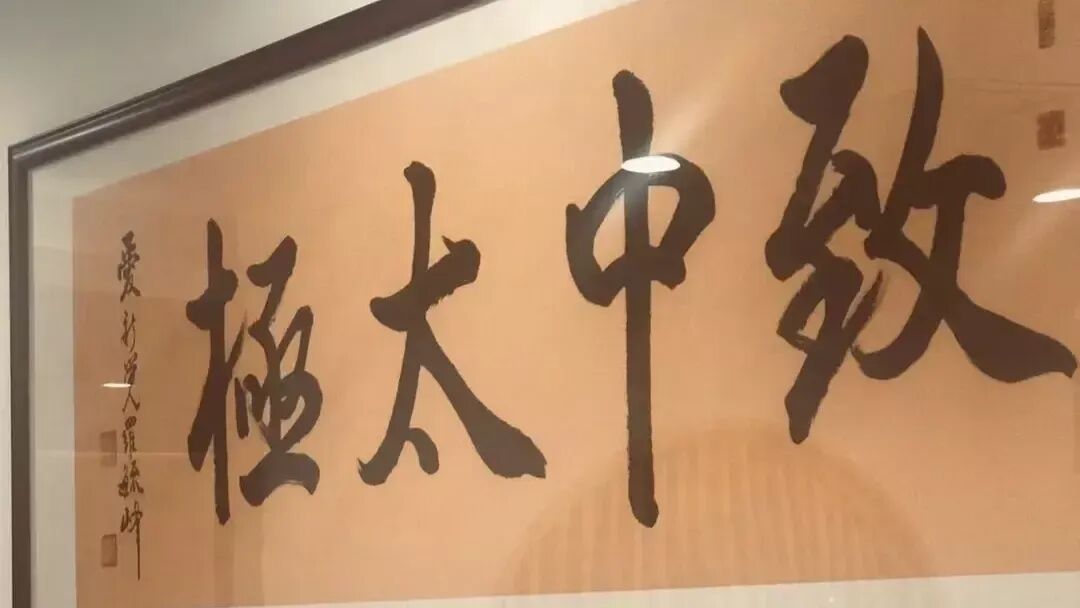 致中太極
愛新覺羅毓峰